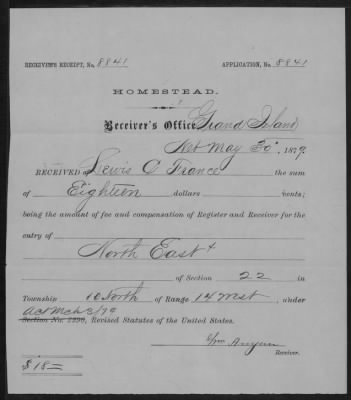 RECEIVER'S RECEIPT, No. 8841 APPLICATION, No. 8841
HOMESTEAD.
Receiver's Office Grand Island
Neb May 30" 1879.
RECEIVED of Lewis C France the sum
of Eighteen dollars cents;
being the amount of fee and compensation of Register and Receiver for the
entry of
North East 4
of Section 22 in
Township 10 North of Range 14 West, under
Act Mch 3/79
Section No. 2290, Revised Statutes of the United States.
Wm Anyan
Receiver.
$18=